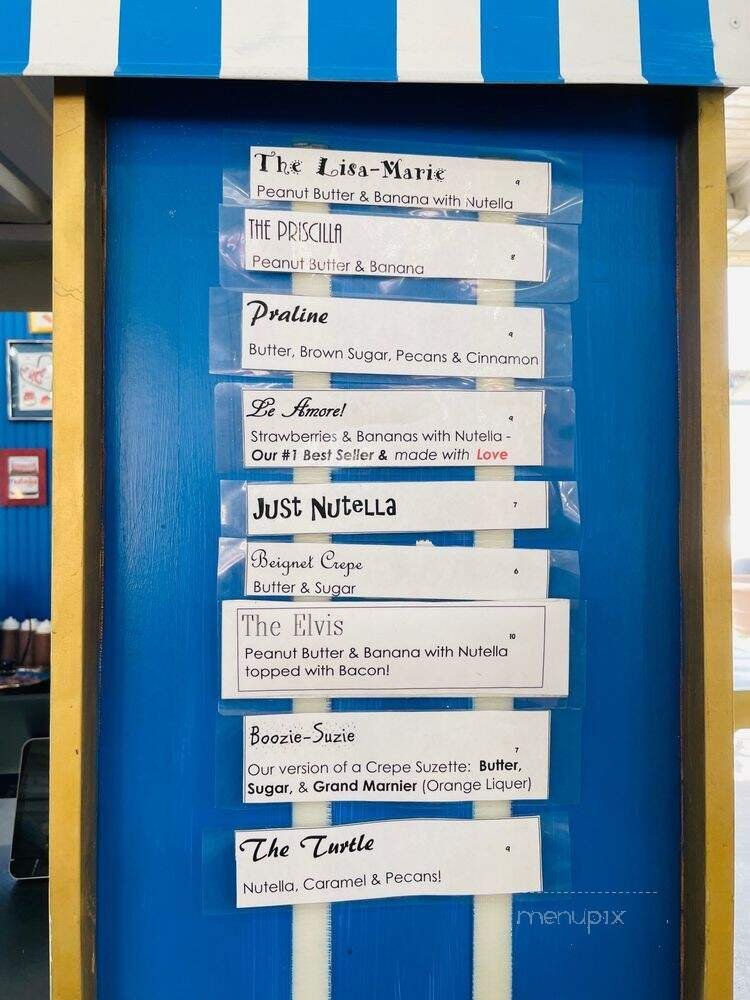 The Lisa-Marie 9
Peanut Butter & Banana with Nutella
THE PRISCILLA 8
Peanut Butter & Banana
Praline 9
Butter, Brown Sugar, Pecans & Cinnamon
Le Amore! 9
Strawberries & Bananas with Nutella -
Our #1 Best Seller & made with Love
Just Nutella 7
Beignet Crepe 6
Butter & Sugar
The Elvis 10
Peanut Butter & Banana with Nutella
topped with Bacon!
Boozie-Suzie 7
Our version of a Crepe Suzette: Butter,
Sugar, & Grand Marnier (Orange Liquer)
The Turtle 9
Nutella, Caramel & Pecans!
menupix